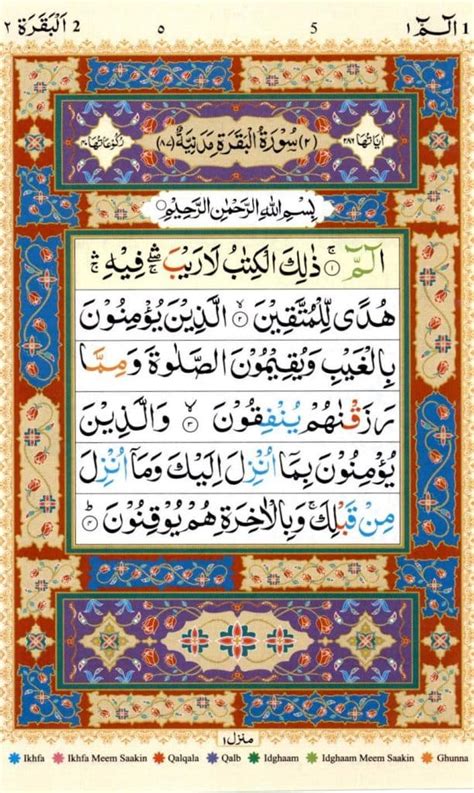 2 اَلْبَقَرَة ٢ ٥ 5 الٓمّٓ ١ 1
اٰيَاتُهَا ٢٨٦ (٢) سُوْرَةُ الْبَقَرَةِ مَدَنِيَّةٌ (٨٧) رُكُوْعَاتُهَا ٤٠
بِسْمِ اللّٰهِ الرَّحْمٰنِ الرَّحِيْمِ
الٓمّٓ ۚ‏ ١ ذٰلِكَ الْكِتٰبُ لَا رَيْبَ ۛۖ فِيْهِ ۛۚ
هُدًى لِّلْمُتَّقِيْنَ ۙ‏ ٢ الَّذِيْنَ يُؤْمِنُوْنَ
بِالْغَيْبِ وَيُقِيْمُوْنَ الصَّلٰوةَ وَمِمَّا
رَزَقْنٰهُمْ يُنْفِقُوْنَ ۙ‏ ٣ وَالَّذِيْنَ
يُؤْمِنُوْنَ بِمَآ اُنْزِلَ اِلَيْكَ وَمَآ اُنْزِلَ
مِنْ قَبْلِكَ ۚ وَبِالْاٰخِرَةِ هُمْ يُوْقِنُوْنَ ؕ‏ ٤
منزل ١
Ikhfa Ikhfa Meem Saakin Qalqala Qalb Idghaam Idghaam Meem Saakin Ghunna